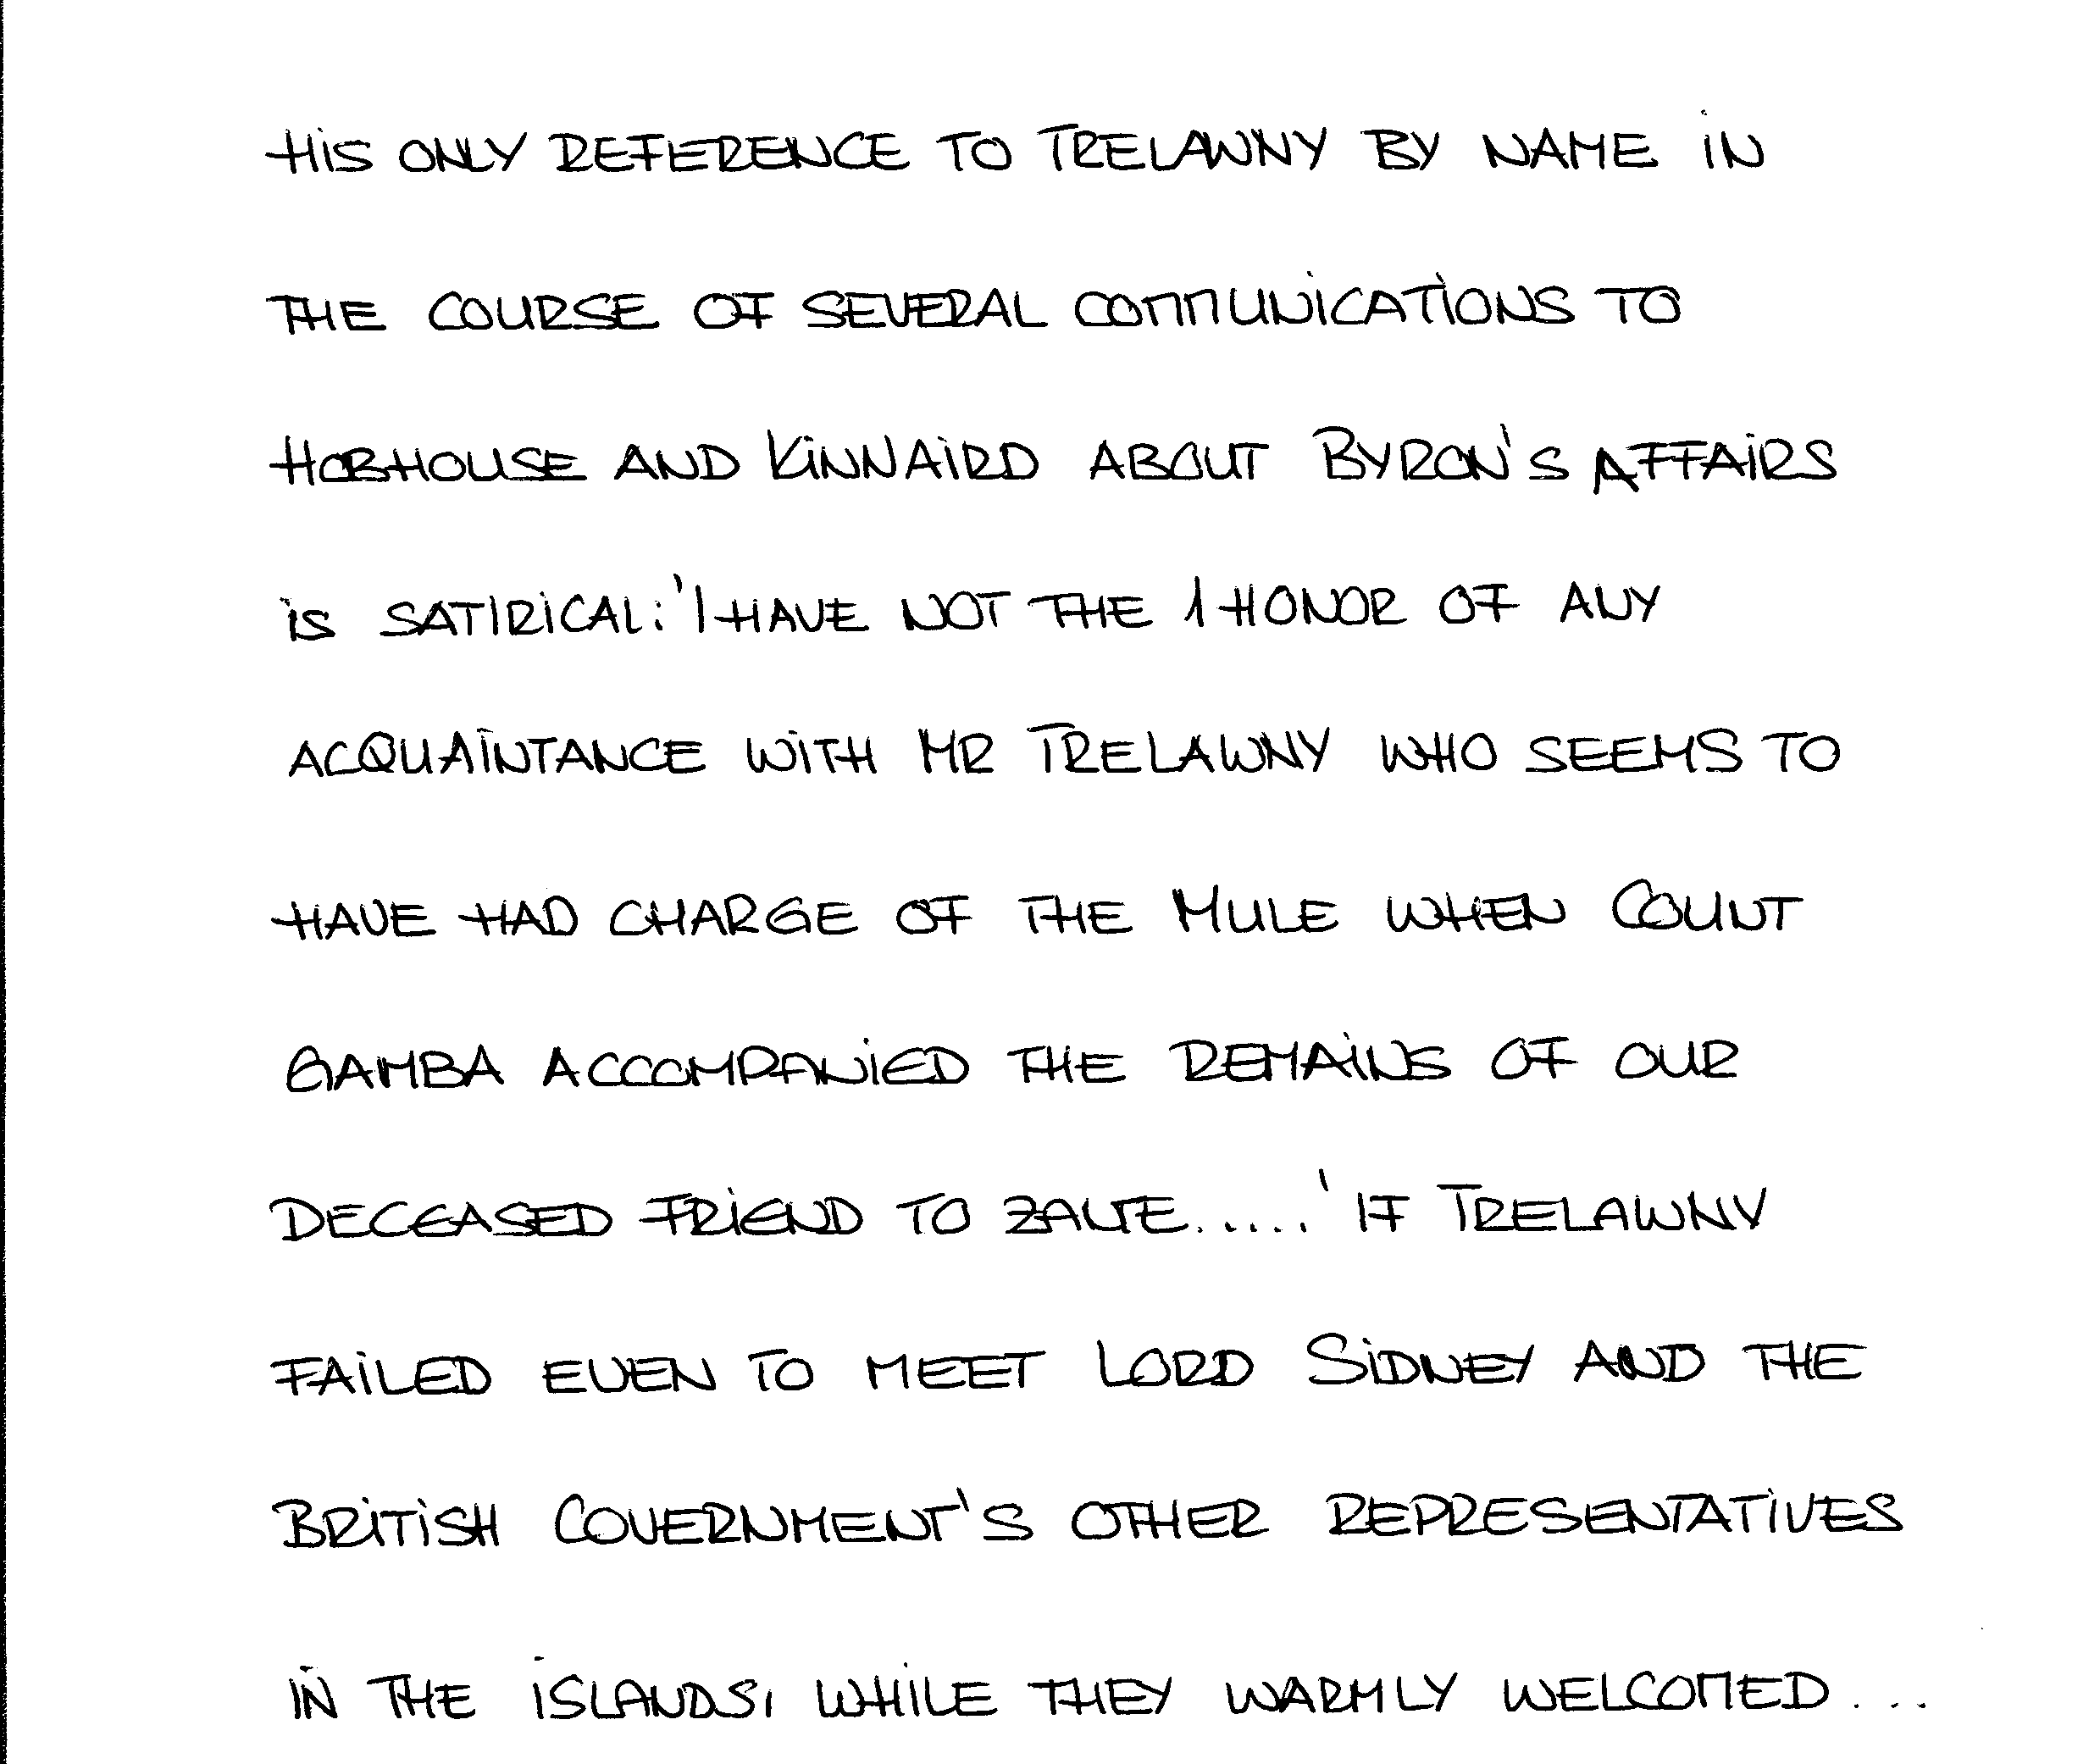 HIS ONLY REFERENCE TO TRELAWNY BY NAME IN
THE COURSE OF SEVERAL COMMUNICATIONS TO
HOBHOUSE AND KINNAIRD ABOUT BYRON'S AFFAIRS
IS SATIRICAL: 'I HAVE NOT THE 1 HONOR OF ANY
ACQUAINTANCE WITH MR TRELAWNY WHO SEEMS TO
HAVE HAD CHARGE OF THE MULE WHEN COUNT
GAMBA ACCOMPANIED THE REMAINS OF OUR
DECEASED FRIEND TO ZANTE.....' IF TRELAWNY
FAILED EVEN TO MEET LORD SIDNEY AND THE
BRITISH GOVERNMENT'S OTHER REPRESENTATIVES
IN THE ISLANDS, WHILE THEY WARMLY WELCOMED...